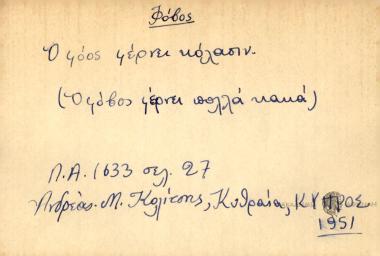 Φόβος
Ὁ φόος φέρνει κόλασιν.
(Ὁ φόβος φέρνει πολλά κακά)
Λ.Α. 1633 σελ. 27
Ἀνδρέας Μ. Κολίτσης, Κυθραία, ΚΥΠΡΟΣ
1951